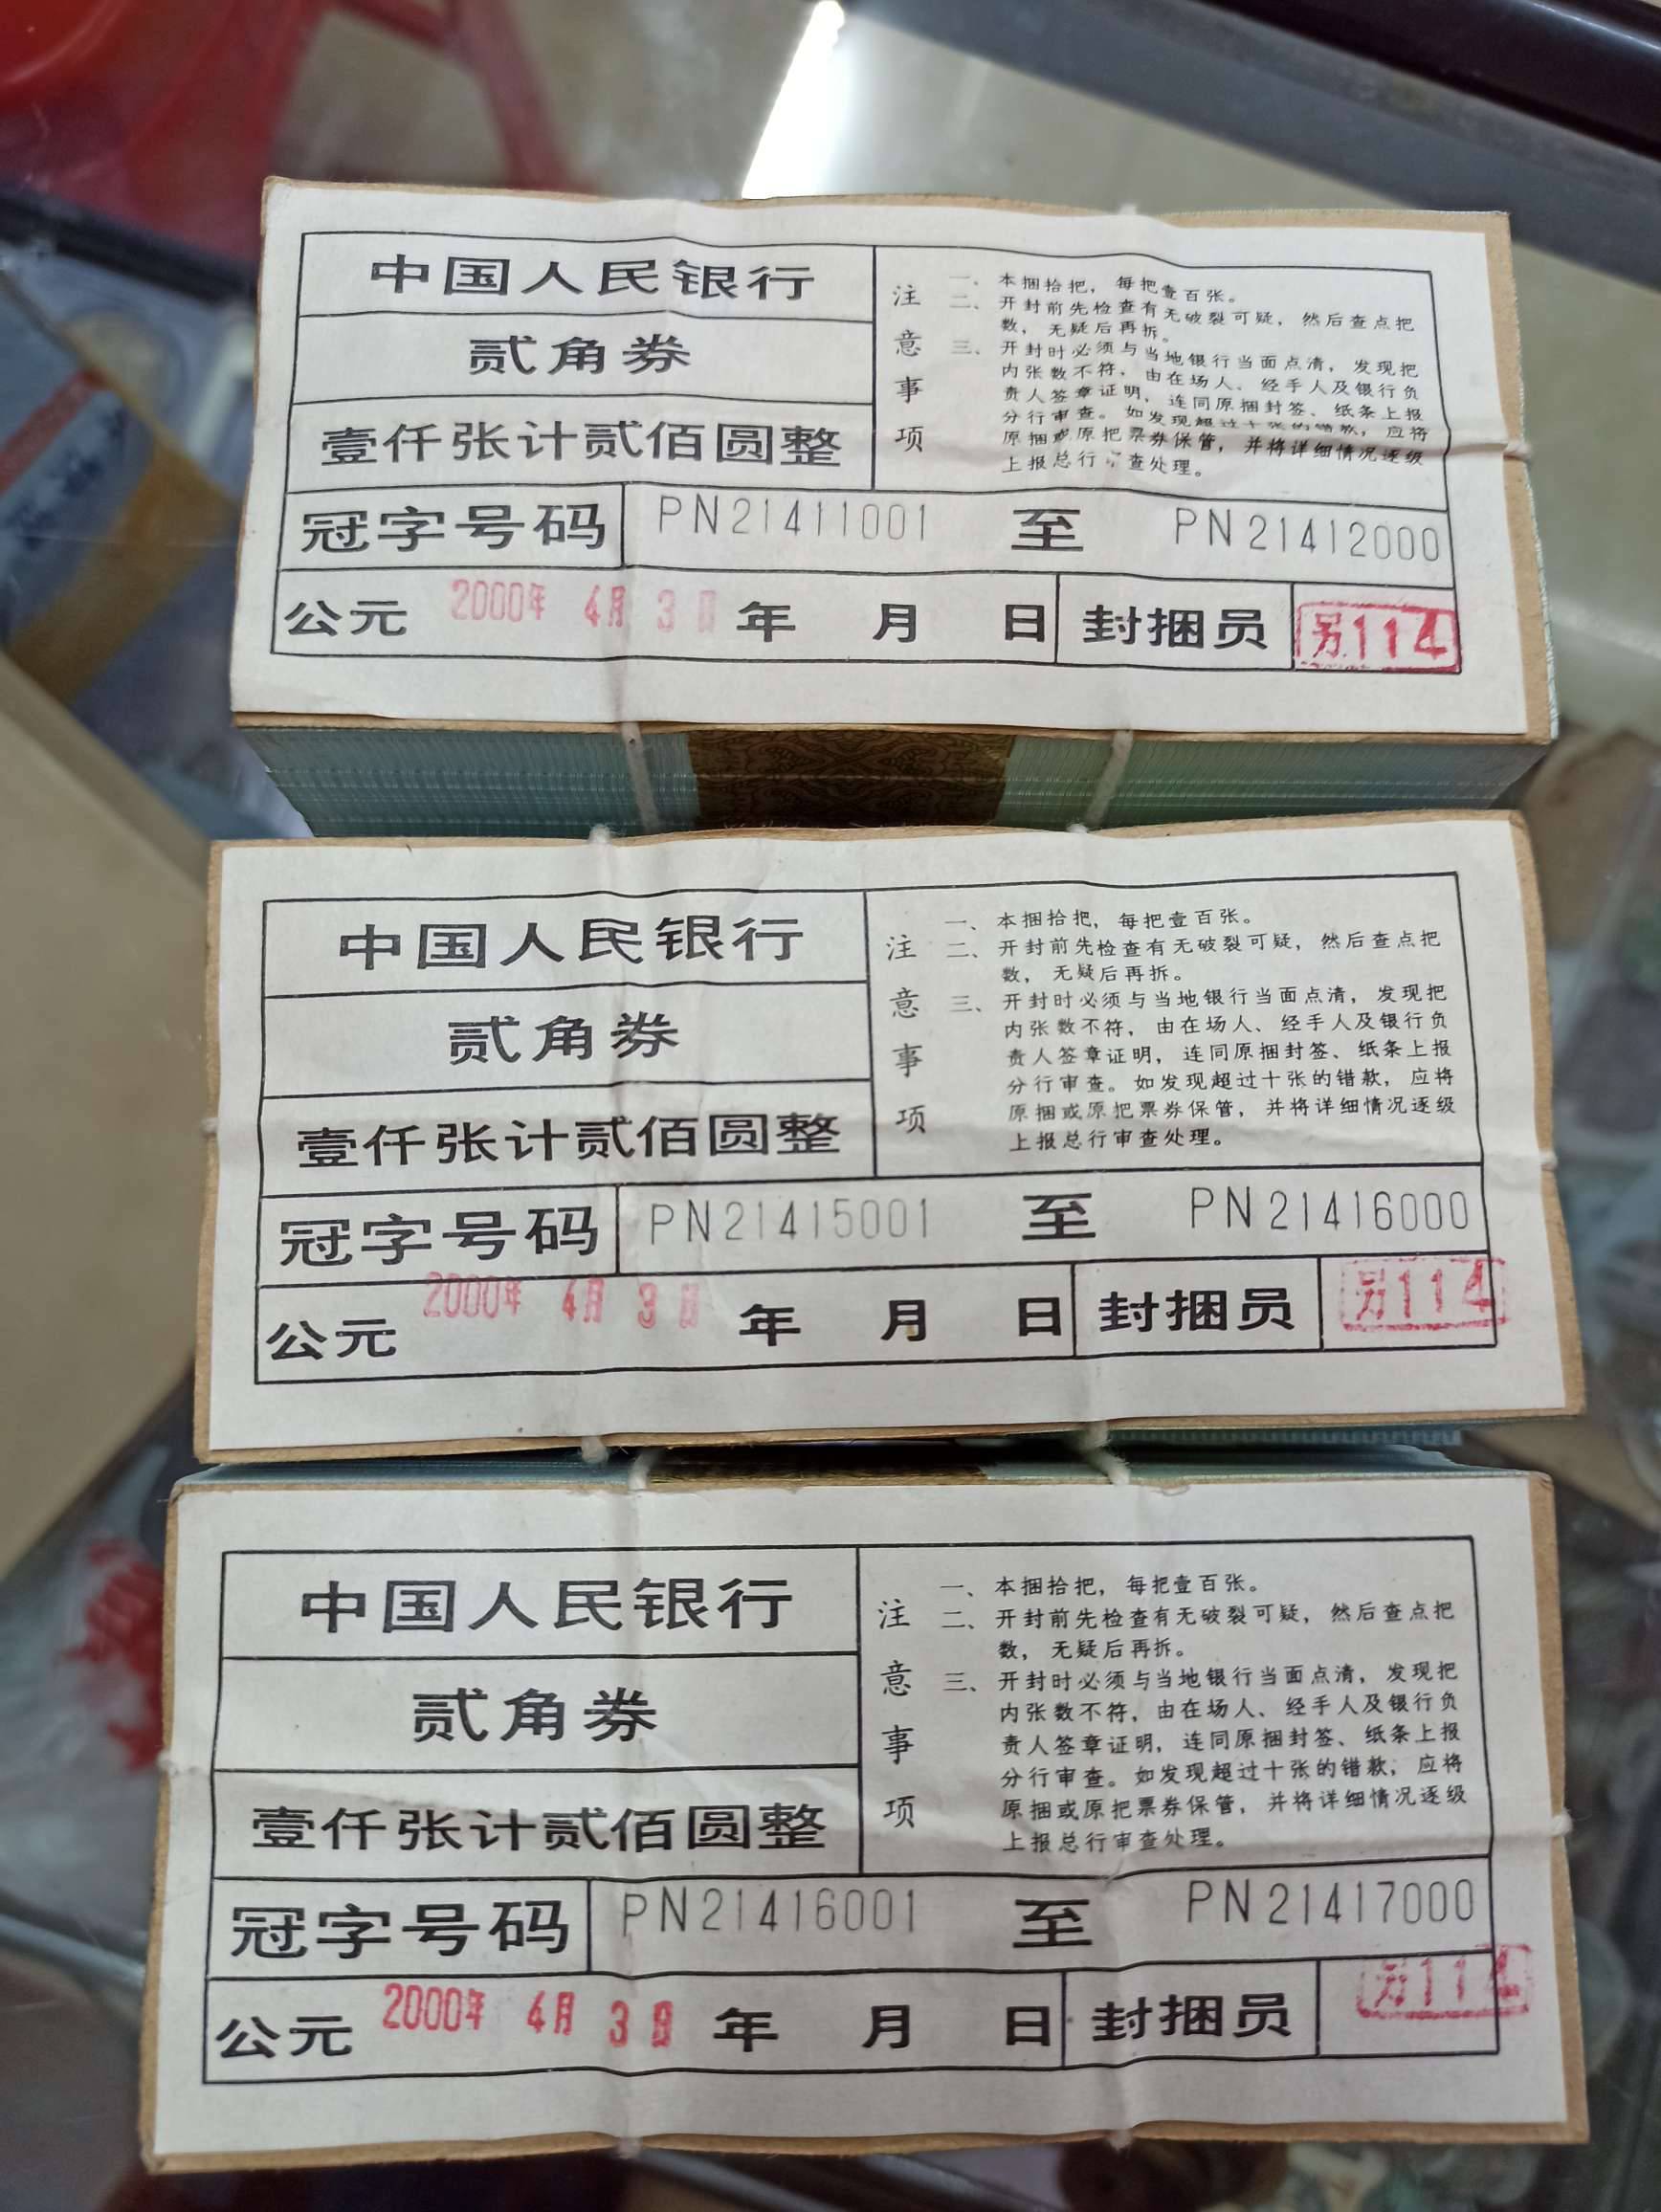 中国人民银行
贰角券
壹仟张计贰佰圆整
注意事项
一、本捆拾把，每把壹百张。
二、开封前先检查有无破裂可疑，然后查点把
数，无疑后再拆。
三、开封时必须与当地银行当面点清，发现把
内张数不符，由在场人、经手人及银行负
责人签章证明，连同原捆封签、纸条上报
分行审查。如发现超过十张的错款，应将
原捆或原把票券保管，并将详细情况逐级
上报总行审查处理。
冠字号码 PN21411001 至 PN21412000
公元 2000年 4月 3日 年 月 日 封捆员 另114
中国人民银行
贰角券
壹仟张计贰佰圆整
注意事项
一、本捆拾把，每把壹百张。
二、开封前先检查有无破裂可疑，然后查点把
数，无疑后再拆。
三、开封时必须与当地银行当面点清，发现把
内张数不符，由在场人、经手人及银行负
责人签章证明，连同原捆封签、纸条上报
分行审查。如发现超过十张的错款，应将
原捆或原把票券保管，并将详细情况逐级
上报总行审查处理。
冠字号码 PN21415001 至 PN21416000
公元 2000年 4月 3日 年 月 日 封捆员 另114
中国人民银行
贰角券
壹仟张计贰佰圆整
注意事项
一、本捆拾把，每把壹百张。
二、开封前先检查有无破裂可疑，然后查点把
数，无疑后再拆。
三、开封时必须与当地银行当面点清，发现把
内张数不符，由在场人、经手人及银行负
责人签章证明，连同原捆封签、纸条上报
分行审查。如发现超过十张的错款，应将
原捆或原把票券保管，并将详细情况逐级
上报总行审查处理。
冠字号码 PN21416001 至 PN21417000
公元 2000年 4月 3日 年 月 日 封捆员 另114